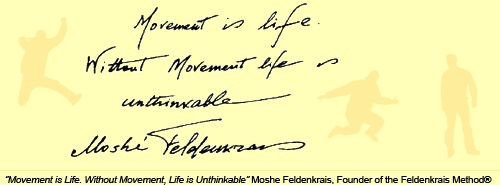 Movement is life.
Without Movement life is
unthinkable
Moshé Feldenkrais
"Movement is Life. Without Movement, Life is Unthinkable" Moshe Feldenkrais, Founder of the Feldenkrais Method®